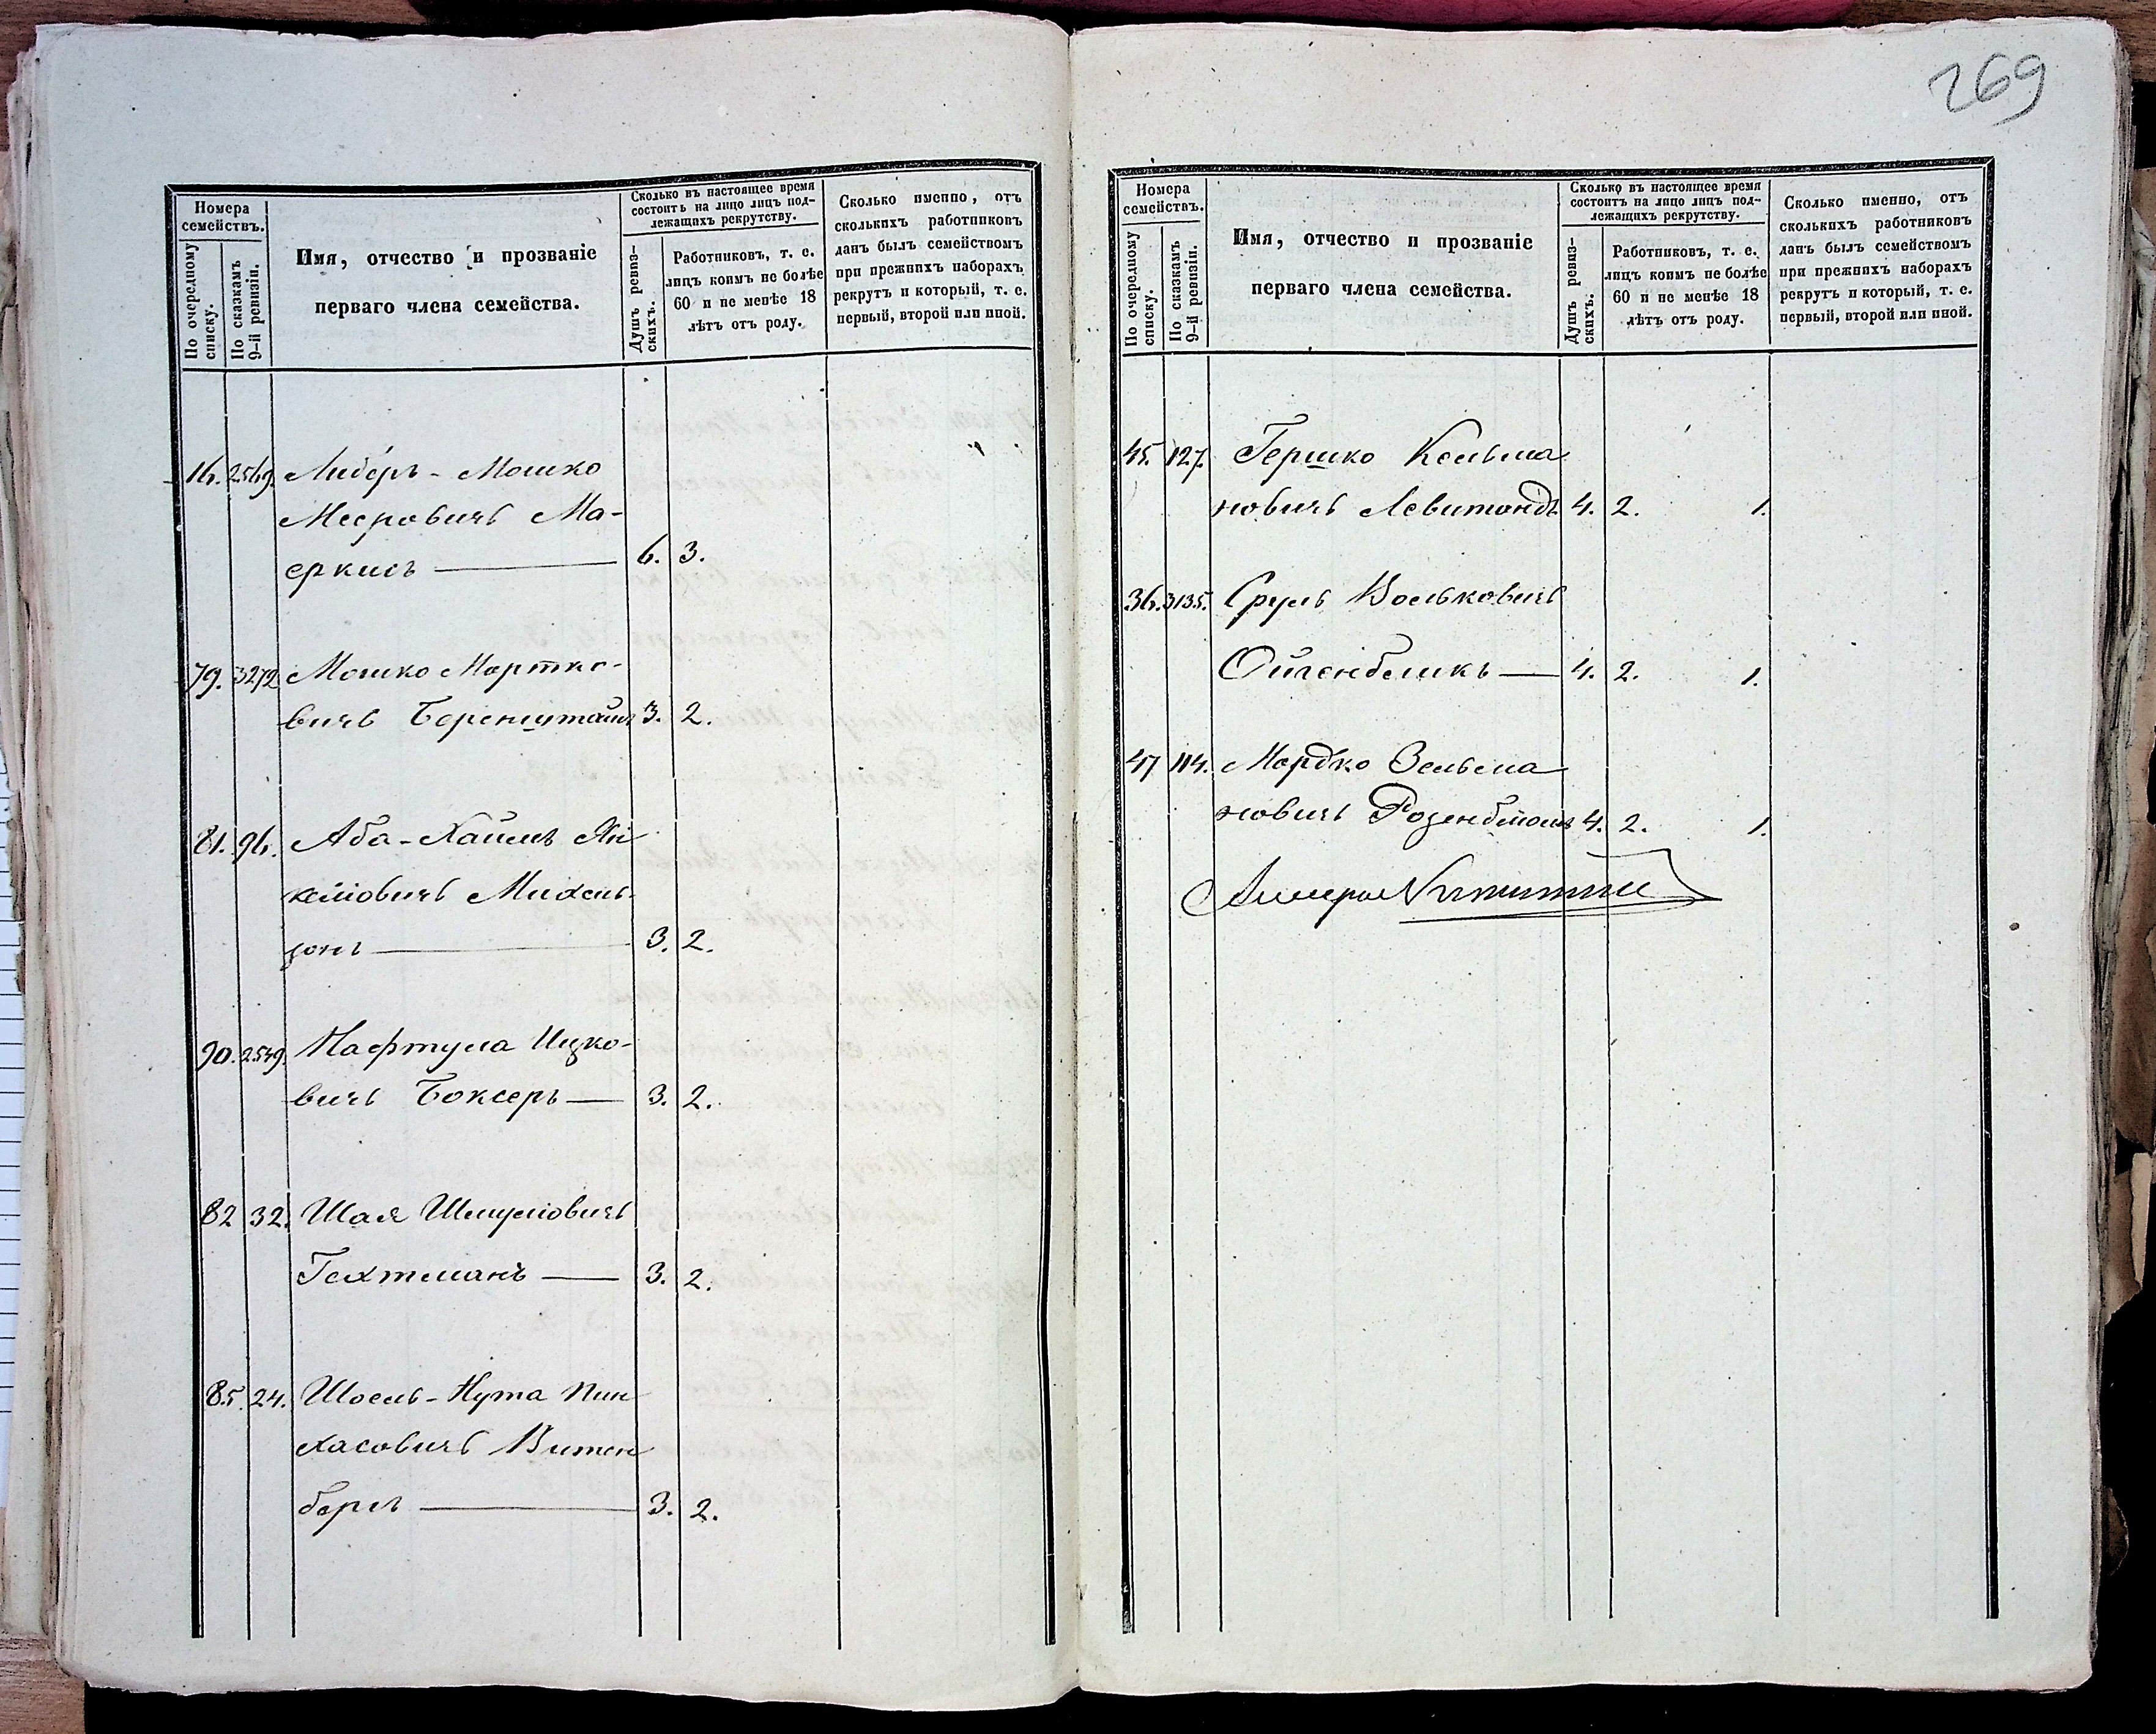 269
Номера
семействъ.
По очередному
списку.
По сказкамъ
9-й ревизіи.
Имя, отчество и прозваніе
перваго члена семейства.
Сколько въ настоящее время
состоитъ на лицо лицъ под-
лежащихъ рекрутству.
Душъ ревиз-
скихъ.
Работниковъ, т. е.
лицъ коимъ не болѣе
60 и не менѣе 18
лѣтъ отъ роду.
Сколько именно, отъ
сколькихъ работниковъ
данъ былъ семействомъ
при прежнихъ наборахъ
рекрутъ и который, т. е.
первый, второй или иной.
16. 2569. Либеръ-Мошко
Мееровичъ Ма-
еркисъ — 6. 3.
79. 3272 Мошко Мортко-
вичъ Беренштейнъ 3. 2.
81. 96. Аба-Хаимъ Ян
келіовичъ Михель-
зонъ — 3. 2.
90. 2549. Нафтула Ицко-
вичъ Боксеръ — 3. 2.
82 32. Шая Шмуліовичъ
Гехтманъ — 3. 2.
85. 24. Шоель-Нута Пин
хасовичъ Витен
бергъ — 3. 2.
Номера
семействъ.
По очередному
списку.
По сказкамъ
9-й ревизіи.
Имя, отчество и прозваніе
перваго члена семейства.
Сколько въ настоящее время
состоитъ на лицо лицъ под-
лежащихъ рекрутству.
Душъ ревиз-
скихъ.
Работниковъ, т. е.
лицъ коимъ не болѣе
60 и не менѣе 18
лѣтъ отъ роду.
Сколько именно, отъ
сколькихъ работниковъ
данъ былъ семействомъ
при прежнихъ наборахъ
рекрутъ и который, т. е.
первый, второй или иной.
45. 127. Гершко Кельма
новичъ Левитондъ 4. 2. 1.
36. 3135. Сруль Вольковичъ
Ойгенбликъ — 4. 2. 1.
47 114. Мордко Зельма
новичъ Розенблюмъ 4. 2. 1.